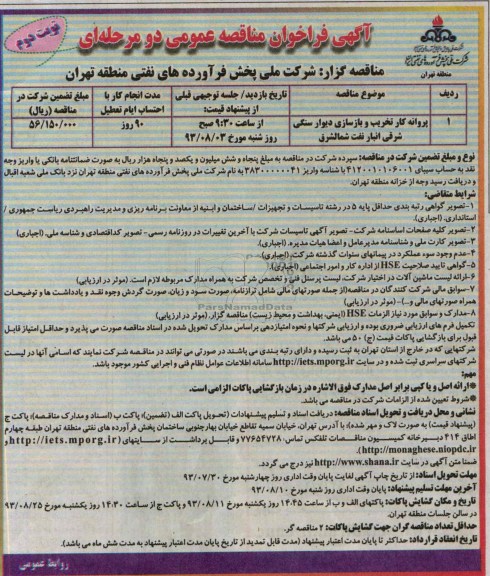 نوبت دوم
آگهی فراخوان مناقصه عمومی دو مرحله‌ای
شرکت ملی پخش فرآورده های نفتی ایران
منطقه تهران
مناقصه گزار: شرکت ملی پخش فرآورده های نفتی منطقه تهران
ردیف
موضوع مناقصه
تاریخ بازدید / جلسه توجیهی قبلی از پیشنهاد قیمت:
مدت انجام کار با احتساب ایام تعطیل
مبلغ تضمین شرکت در مناقصه (ریال)
۱
پروانه کار تخریب و بازسازی دیوار سنگی شرقی انبار نفت شمالشرق
از ساعت ۹:۳۰ صبح روز شنبه مورخ ۹۳/۰۸/۰۳
۹۰ روز
۵۶/۱۵۰/۰۰۰
نوع و مبلغ تضمین شرکت در مناقصه: سپرده شرکت در مناقصه به مبلغ پنجاه و شش میلیون و یکصد و پنجاه هزار ریال به صورت ضمانتنامه بانکی یا واریز وجه
نقد به حساب سیبای ۴۱۲۰۰۱۰۱۰۶۰۰۱ با شناسه واریز ۳۸۳۰۰۰۰۰۰۴۱ به نام شرکت ملی پخش فرآورده های نفتی منطقه تهران نزد بانک ملی شعبه اقبال
و دریافت رسید وجه از خزانه منطقه تهران.
شرایط متقاضی:
۱-تصویر گواهی رتبه بندی حداقل پایه ۵ در رشته تاسیسات و تجهیزات /ساختمان و ابنیه از معاونت برنامه ریزی و مدیریت راهبردی ریاست جمهوری /
استانداری. (اجباری).
۲-تصویر کلیه صفحات اساسنامه شرکت- تصویر آگهی تاسیسات شرکت با آخرین تغییرات در روزنامه رسمی- تصویر کداقتصادی و شناسه ملی. (اجباری).
۳-تصویر کارت ملی و شناسنامه مدیرعامل و اعضا هیات مدیره. (اجباری).
۴-عدم وجود سوء عملکرد در پیمانهای سنوات گذشته شرکت. (اجباری).
۵-گواهی تایید صلاحیت HSE از اداره کار و امور اجتماعی (اجباری).
۶-ارائه لیست ماشین آلات در اختیار شرکت، لیست پرسنل فنی و تخصصی شرکت به همراه مدارک مربوطه لازم است. (موثر در ارزیابی)
۷-سوابق مالی شرکت کنندگان در مناقصه(از جمله صورتهای مالی شامل ترازنامه، صورت سود و زیان، صورت گردش وجوه نقد و یادداشت ها و توضیحات
همراه صورتهای مالی و...)- (موثر در ارزیابی)
۸-مدارک و سوابق مورد نیاز الزمات HSE (ایمنی، بهداشت و محیط زیست) مناقصه گزار. (موثر در ارزیابی)
تکمیل فرم های ارزیابی ضروری بوده و ارزیابی شرکتها و نحوه امتیازدهی براساس مدارک تحویل شده در اسناد مناقصه صورت می پذیرد و حداقل امتیاز قابل
قبول برای بازگشایی پاکات قیمت (ج) ۵۰ می باشد.
شرکتهایی که در خارج از استان تهران به ثبت رسیده و دارای رتبه بندی می باشند در صورتی می توانند در مناقصه شرکت نمایند که اسامی آنها در لیست
شرکتهای سراسری ثبت شده و در سایت http://iets.mporg.ir سامانه اطلاعات عوامل نظام فنی و اجرایی کشور موجود باشد.
مهم:
*ارائه اصل و یا کپی برابر اصل مدارک فوق الاشاره در زمان بازگشایی پاکات الزامی است.
*شروط تعیین شده از الزامات شرکت در مناقصه می باشد.
نشانی و محل دریافت و تحویل اسناد مناقصه: دریافت اسناد و تسلیم پیشنهادات (تحویل پاکت الف (تضمین)؛ پاکت ب (اسناد و مدارک مناقصه)؛ پاکت ج
(پیشنهاد قیمت) به صورت لاک و مهر شده): با آدرس تهران، خیابان سمیه تقاطع خیابان بهارجنوبی ساختمان پخش فرآورده های نفتی منطقه تهران طبقه چهارم
اطاق ۴۱۴ دبیرخانه کمیسیون مناقصات تلفکس تماس: ۷۷۶۵۴۷۲۸ و قابل برداشت از سایتهای (http://iets.mporg.ir و
http://monaghese.niopdc.ir).
ضمنا متن آگهی در سایت http://www.shana.ir نیز درج می گردد.
مهلت تحویل اسناد: از تاریخ چاپ آگهی لغایت پایان وقت اداری روز چهارشنبه مورخ ۹۳/۰۷/۳۰
آخرین مهلت تسلیم پیشنهاد: پایان وقت اداری روز شنبه مورخ ۹۳/۰۸/۱۰
تاریخ و مکان گشایش پاکات: پاکتهای الف و ب از ساعت ۱۴:۴۵ روز یکشنبه مورخ ۹۳/۰۸/۱۱ و پاکت ج از ساعت ۱۴:۳۰ روز یکشنبه مورخ ۹۳/۰۸/۲۵
در سالن جلسات منطقه تهران.
حداقل تعداد مناقصه گران جهت گشایش پاکات: ۲ مناقصه گر.
تاریخ انعقاد قرارداد: حداکثر تا پایان مدت اعتبار پیشنهاد (مدت قابل تمدید از تاریخ پایان مدت اعتبار پیشنهاد به مدت شش ماه می باشد).
روابط عمومی
ParsNamadData